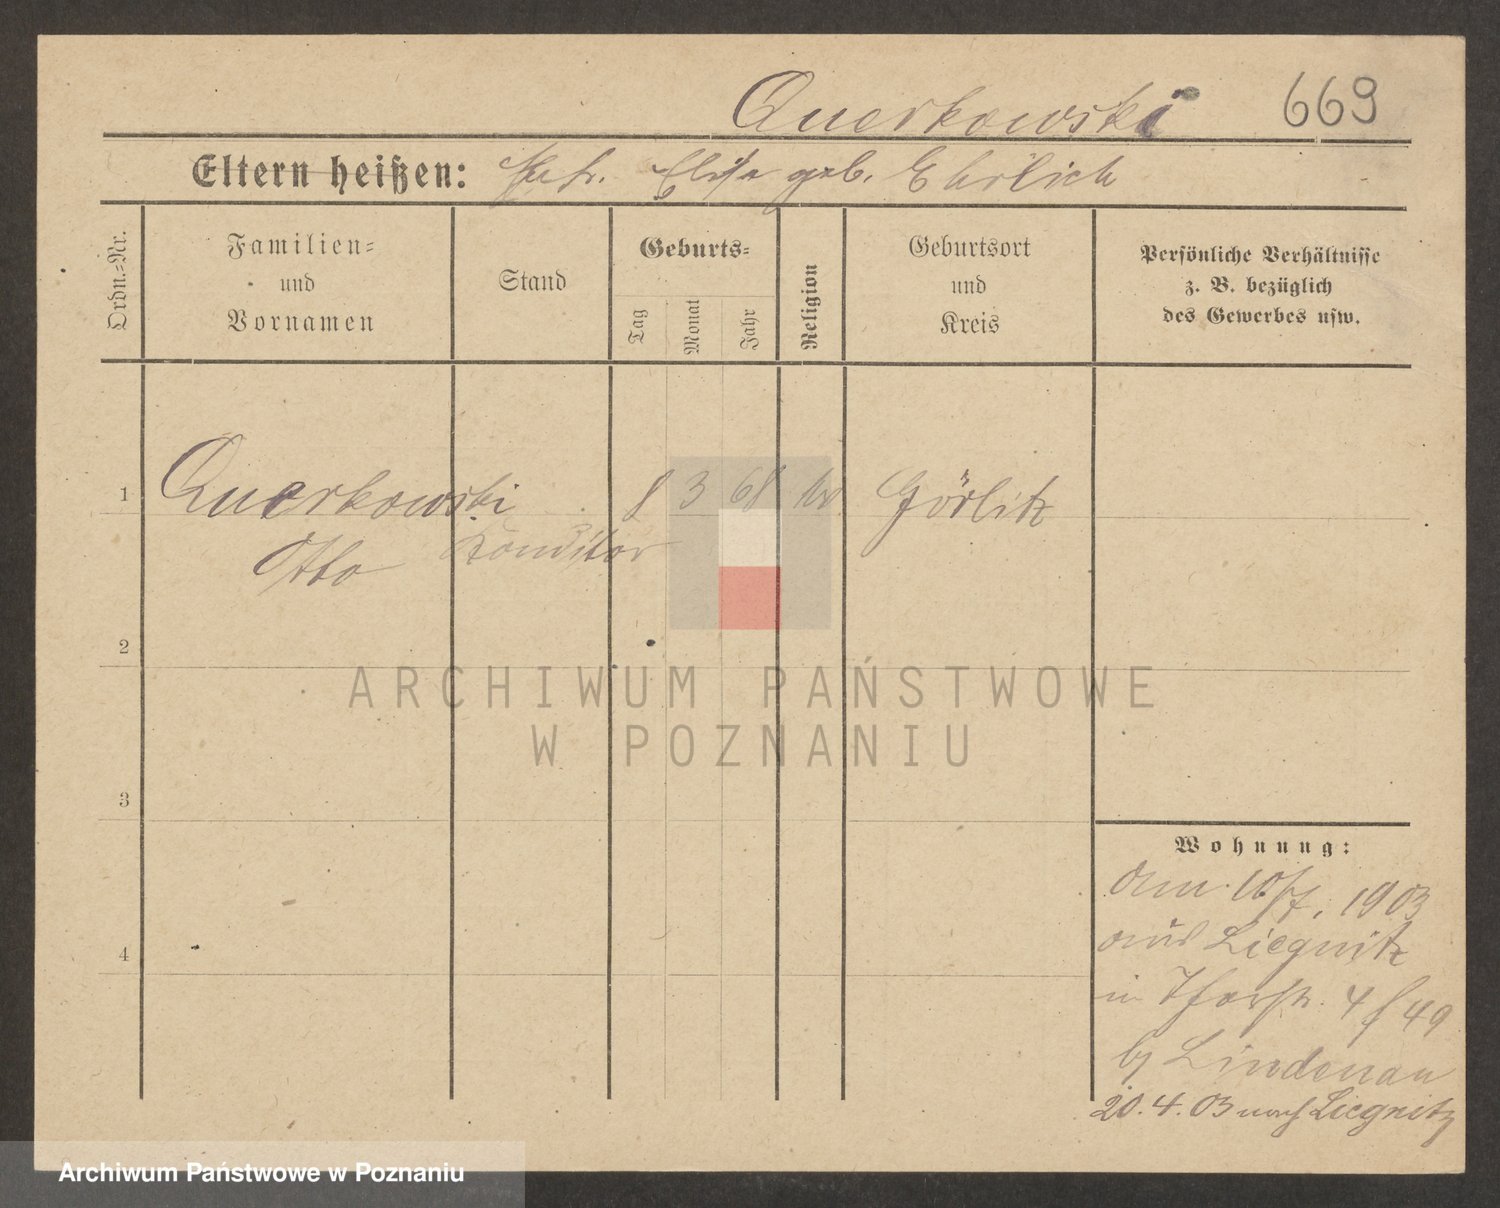 Querkowski 669
Eltern heißen: Elise geb. Ehrlich
Ordn.=Nr.
Familien=
und
Vornamen
Stand
Geburts=
Tag
Monat
Jahr
Religion
Geburtsort
und
Kreis
Persönliche Verhältnisse
z. B. bezüglich
des Gewerbes usw.
1 Querkowski 8 3 68 Görlitz
Otto Konditor
2
3
4
Wohnung:
1903
aus Liegnitz
in 4 49
by Lindenau
20.4.03 nach Liegnitz
ARCHIWUM PAŃSTWOWE
W POZNANIU
Archiwum Państwowe w Poznaniu